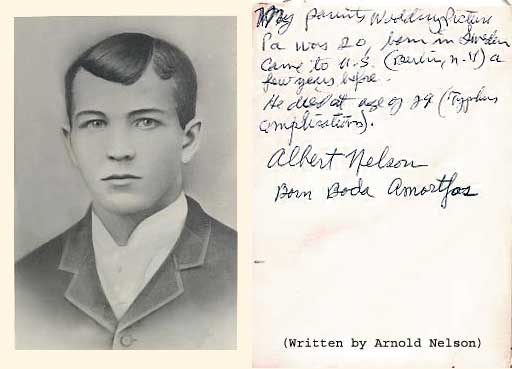 My parents Wedding Picture
Pa was 20, born in Sweden
Came to U.S. (Berlin, N.H) a
few years before.
He died at age of 29 (Typhus
complications).
Albert Nelson
Born Boda Amortfas
(Written by Arnold Nelson)